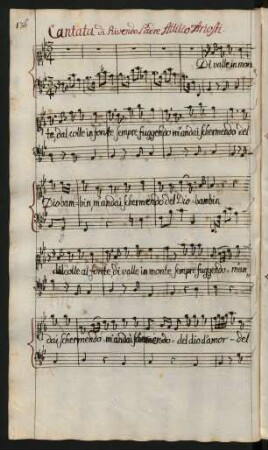 136
Cantata di Riverendo Padre Attilio Ariosti
Di valle in mon
te, dal colle in fonte sempre fuggendo m'andai schermendo del
Dio bam - bin, m'andai schermendo del Dio - bambin
dal colle al fonte di valle in monte sempre fuggendo - man
dai schermendo - m'andai schermendo - del dio d'amor - del